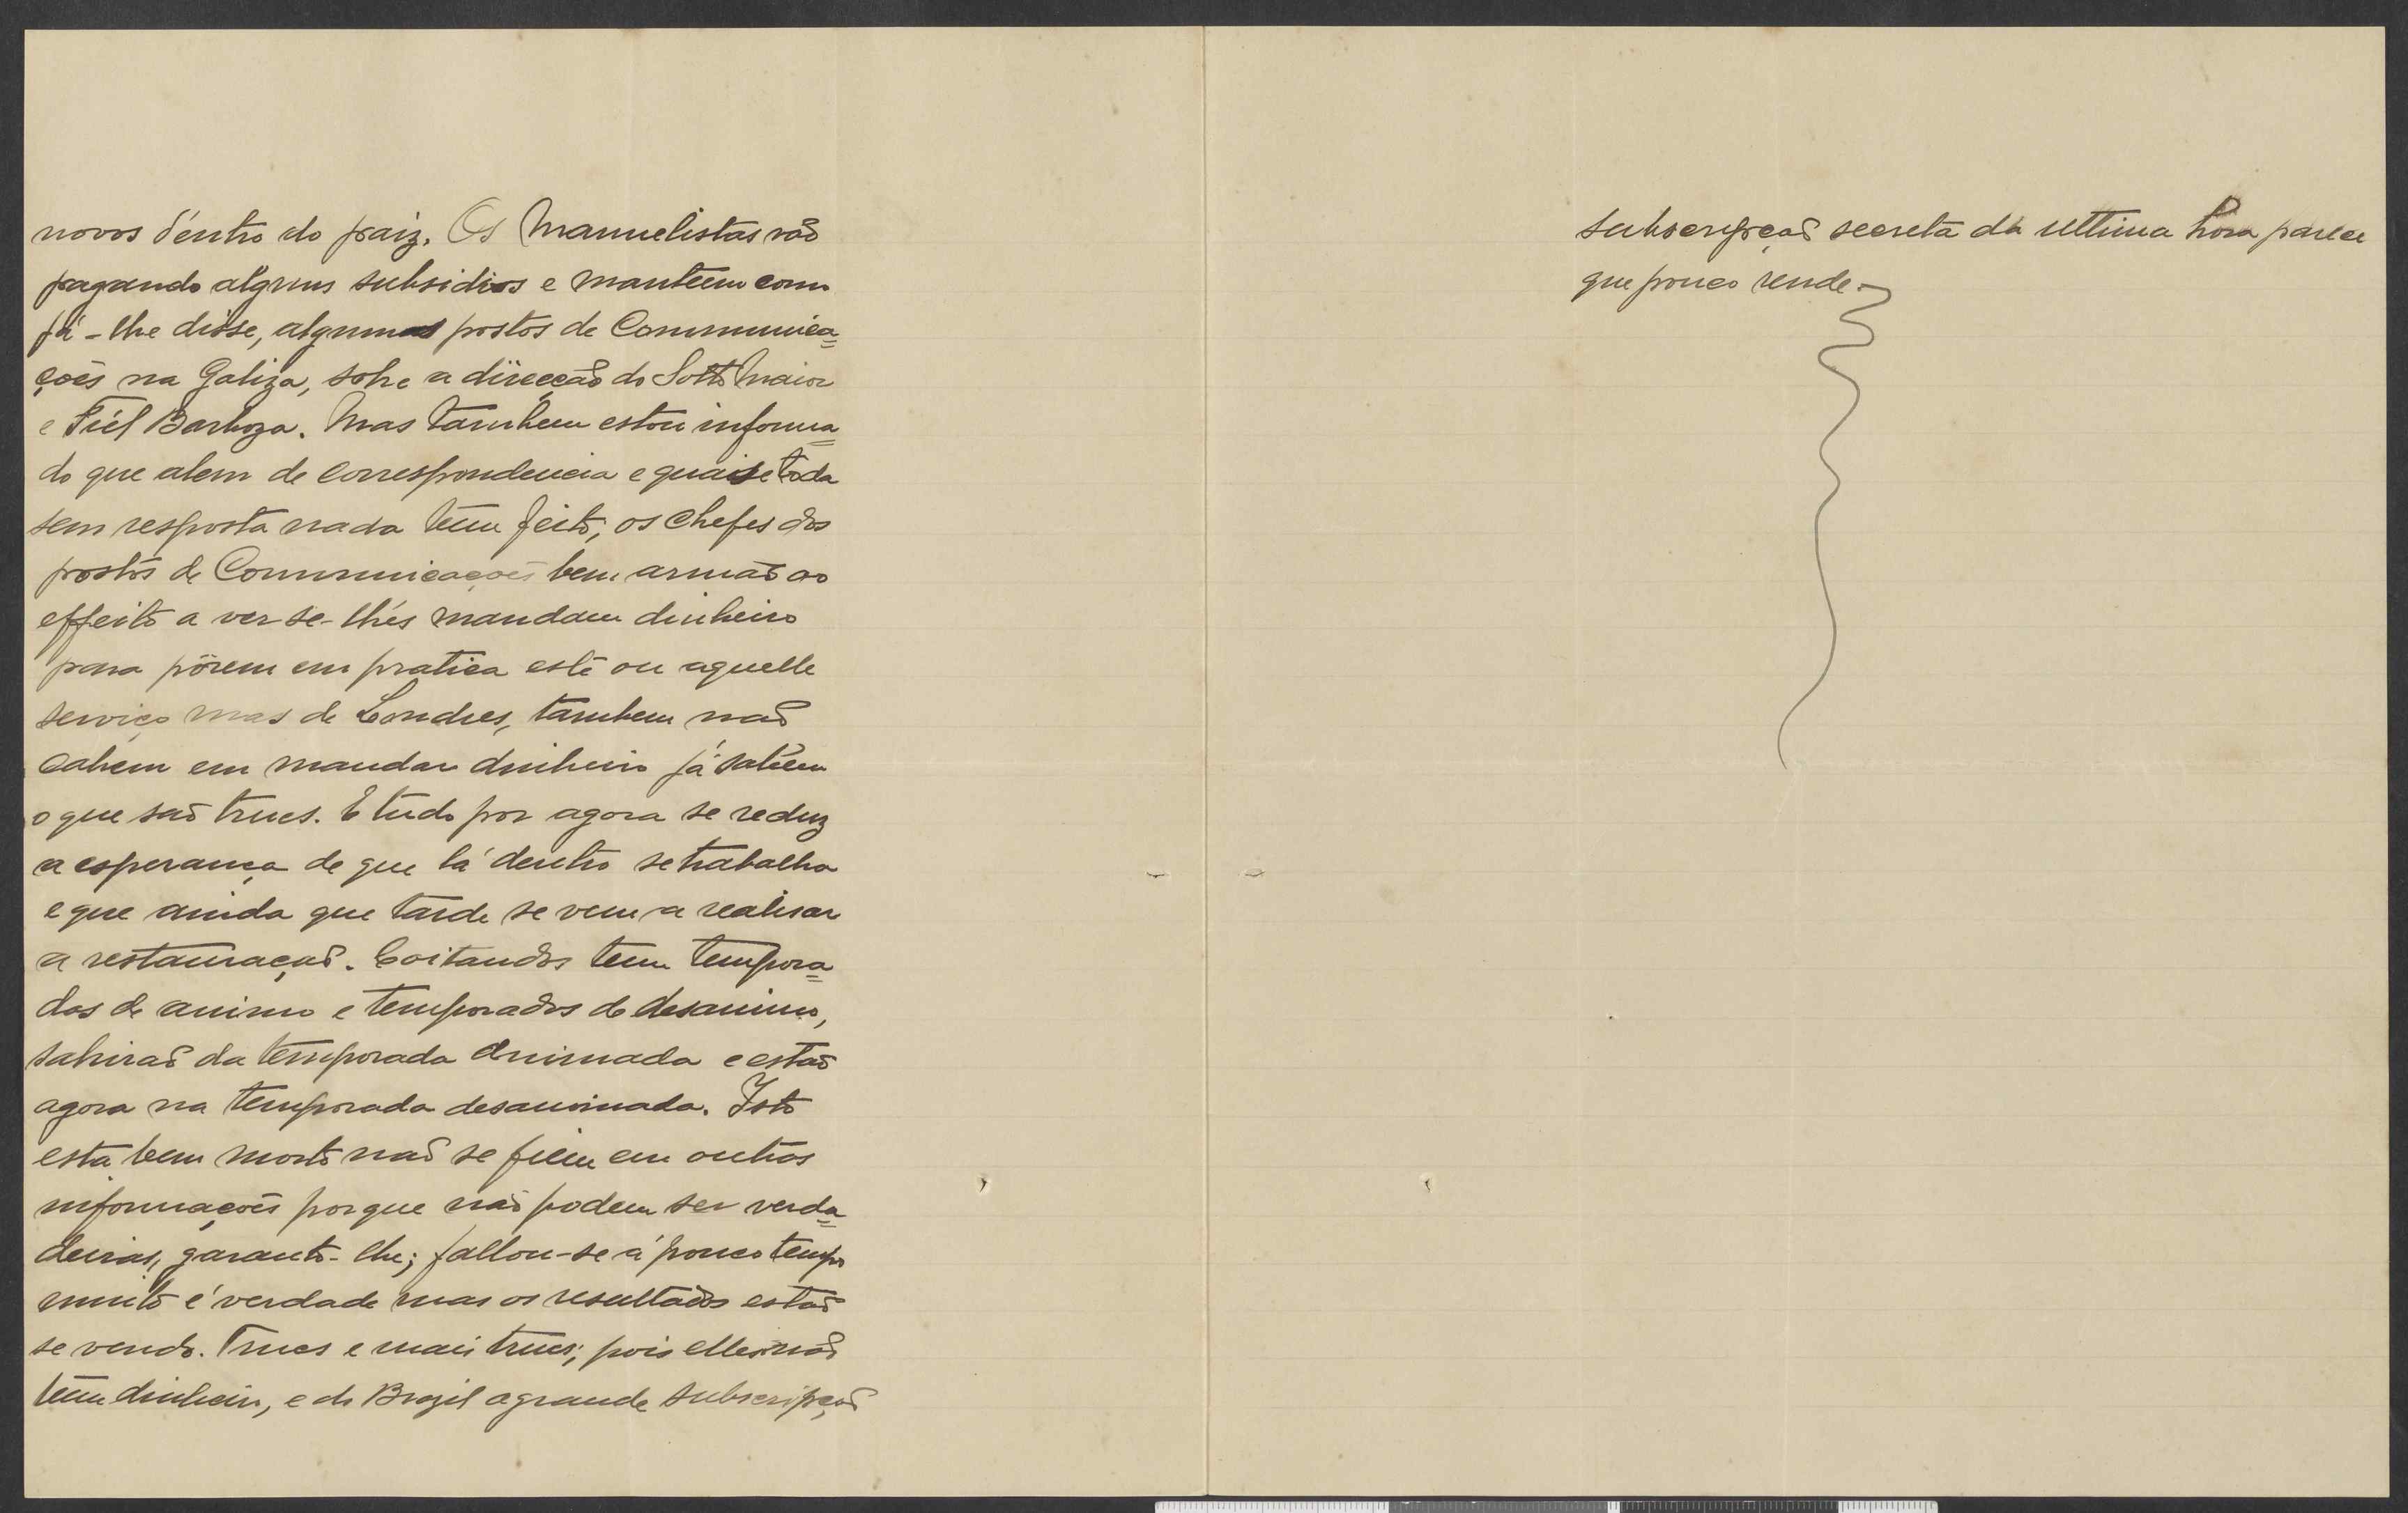 novos déntro do paiz. Os Manuelistas vão
pagando alguns subsidios e mantéem com
já-lhe disse, algumas postos de Communica=
ções na Galiza, sobre a direcção do Sotto Maior
e Fiél Barboza. Mas tambem estou informa=
do que alem de correspondencia e quaise toda
sem resposta nada téem feito, os chefes dos
postos de Communicações bem armaõ ao
effeito a ver-se-lhés mandam dinheiro
para pôrem em pratica esté ou aquelle
serviço mas de Londres, tambem naõ
cahem em mandar dinheiro já sabéem
o que saõ trucs. E tudo por agora se reduz
a esperança de que lá dentro se trabalha
e que ainda que tarde se vem a realisar
a restauraçaõ. Coitandos tem tempora=
das de animo e temporadas de desanimo,
sahiraõ da temporada animada e estaõ
agora na temporada desanimada. Isto
está bem morto naõ se fiem em outras
informações porque naõ podem ser verda=
deiras, garanto-lhe; fallou-se á pouco tempo
muito é verdade mas os resultados estaõ
se vendo. Trucs e mais trucs; pois elles naõ
téem dinheiro, e do Brazil a grande subscripçaõ
subscripçaõ secreta da ultima hora parece
que pouco rende.